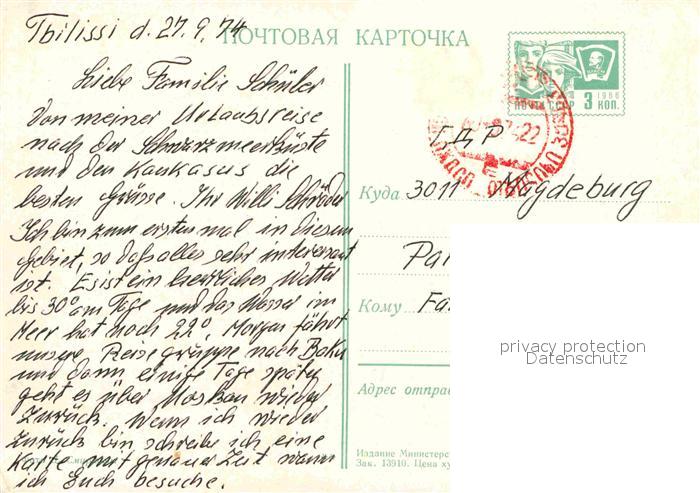 Tbilissi d. 27.9.74
ПОЧТОВАЯ КАРТОЧКА
Liebe Familie Schüler
Von meiner Urlaubsreise
nach der Schwarzmeerküste
und den Kaukasus die
besten Grüsse. Ihr Willi Schröder
Ich bin zum ersten mal in diesem
Gebiet, so daß alles sehr interessant
ist. Es ist ein herrliches Wetter
bis 30° am Tage und das Wasser im
Meer hat noch 22°. Morgen fährt
unsere Reisegruppe nach Baku
und dann einige Tage später
geht es über Moskau wieder
zurück. Wenn ich wieder
zurück bin schreibe ich eine
Karte mit genauer Zeit wann
ich Euch besuche.
1966
ПОЧТА СССР 3 КОП.
22
ГДР
Куда 3011 Magdeburg
Par
Кому Fa
Адрес отправ
Издание Министерс
Зак. 13910. Цена ху
privacy protection
Datenschutz